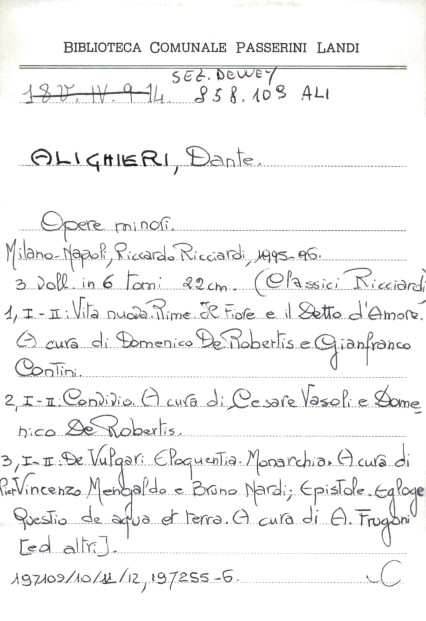 BIBLIOTECA COMUNALE PASSERINI LANDI
SEZ. DEWEY
18V. IV. 9-14 858.109 ALI
ALIGHIERI, Dante.
Opere minori.
Milano-Napoli, Riccardo Ricciardi, 1995-96.
3 voll. in 6 tomi 22cm. (Classici Ricciardi
1, I-II: Vita nuova. Rime. Il Fiore e il Detto d'Amore.
A cura di Domenico De Robertis e Gianfranco
Contini.
2, I-II: Convivio. A cura di Cesare Vasoli e Dome
nico De Robertis.
3, I-II: De Vulgari Eloquentia. Monarchia. A cura di
Pier Vincenzo Mengaldo e Bruno Nardi; Epistole. Egloge
Questio de aqua et terra. A cura di A. Frugoni
[ed altri].
197109/10/11/12, 197255-6. C